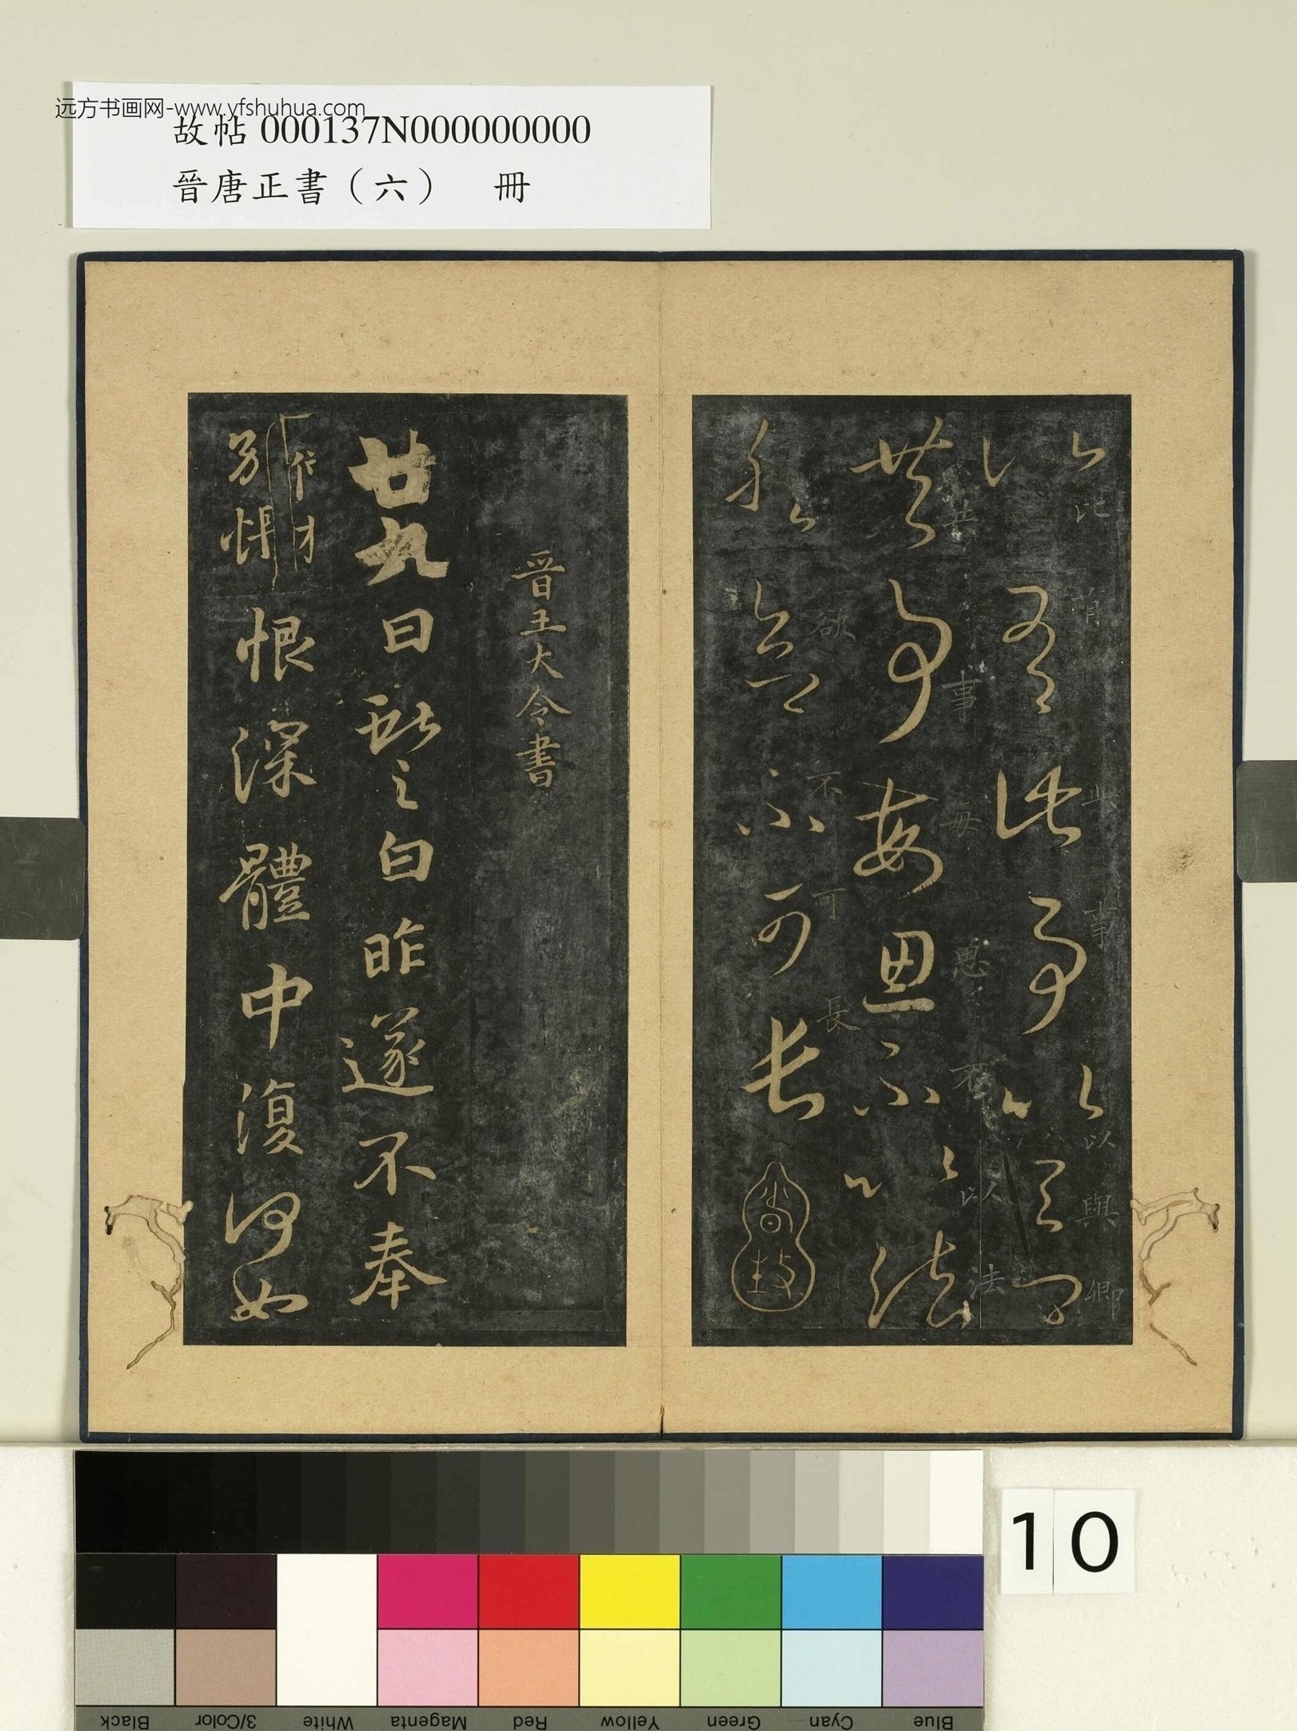 远方书画网-www.yfshuhua.com
故帖 000137N000000000
晉唐正書(六) 冊
此事以與卿
共事每思不以法
不可長
晉王大令書
廿九日獻之白昨遂不奉
別悵恨深體中復何如
10
Black
3/Color
White
Magenta
Red
Yellow
Green
Cyan
Blue